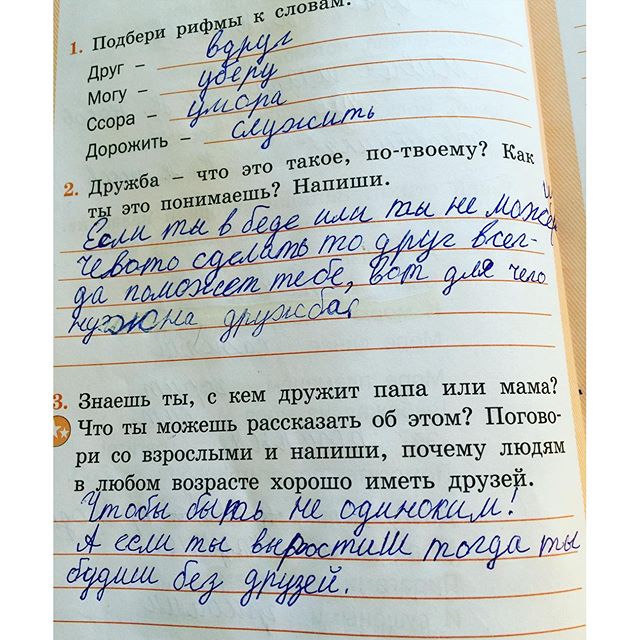 1. Подбери рифмы к словам.
Друг – вдруг
Могу – уберу
Ссора – умора
Дорожить – служить
2. Дружба – что это такое, по-твоему? Как
ты это понимаешь? Напиши.
Если ты в беде или ты не можеш
чевото сделать то друг всег-
да поможет тебе, вот для чего
нужна дружба,
3. Знаешь ты, с кем дружит папа или мама?
Что ты можешь рассказать об этом? Погово-
ри со взрослыми и напиши, почему людям
в любом возрасте хорошо иметь друзей.
Чтобы быть не одиноким!
А если ты выростиш тогда ты
будиш без друзей.